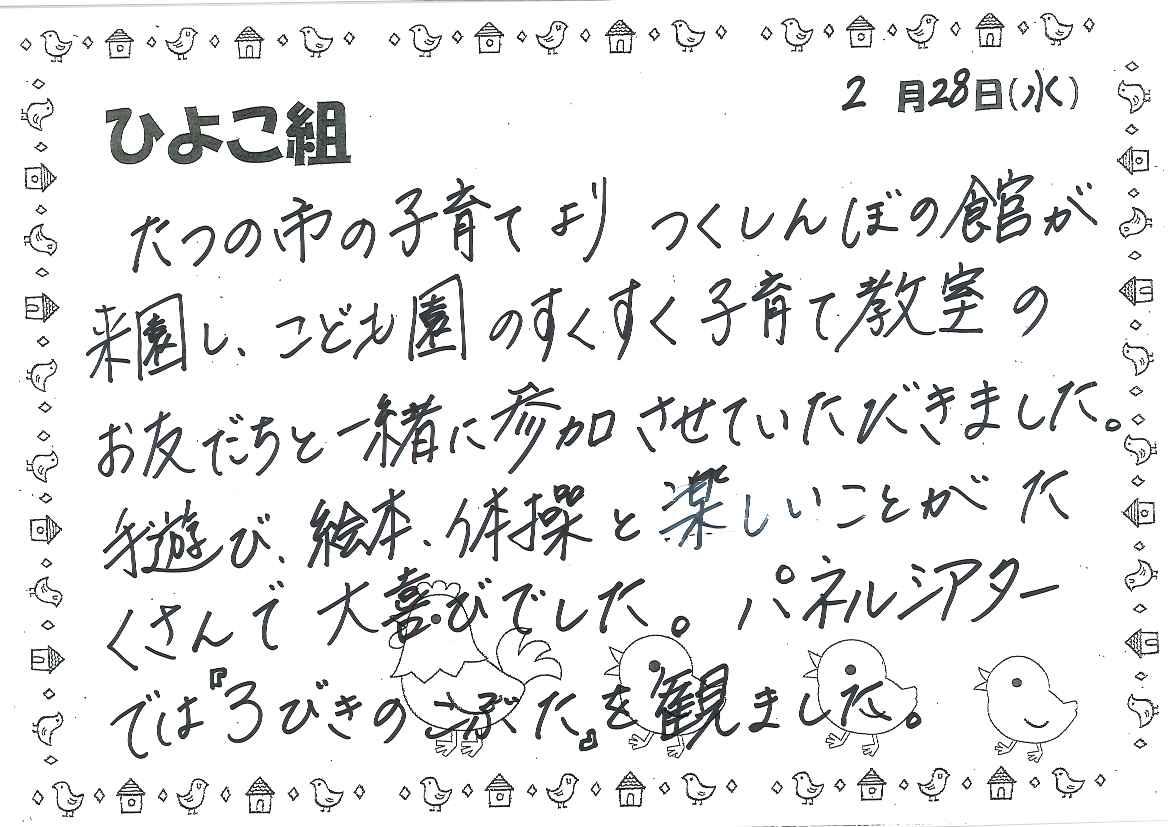 2月28日(水)
ひよこ組
たつの市の子育てより つくしんぼの館が
来園し、こども園のすくすく子育て教室の
お友だちと一緒に参加させていただきました。
手遊び、絵本、体操と楽しいことがた
くさんで大喜びでした。パネルシアター
では『3びきのこぶた』を観ました。